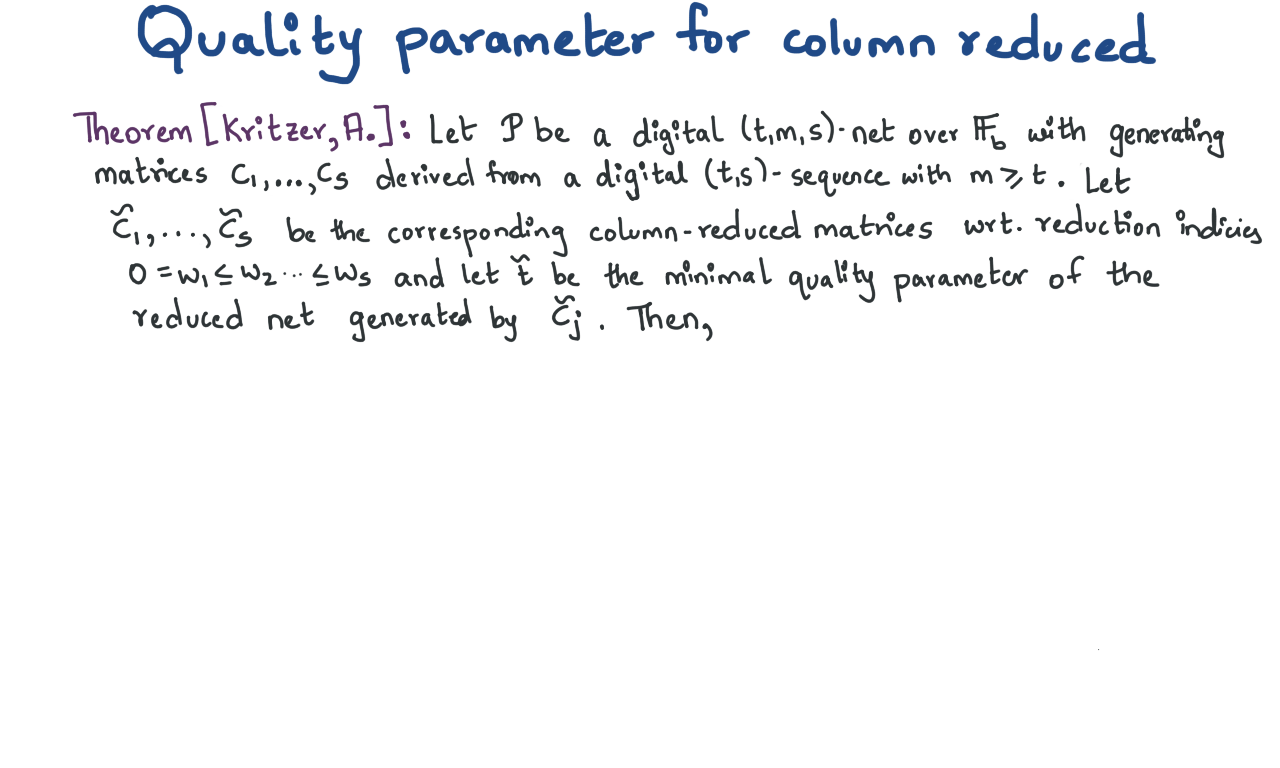 Quality parameter for column reduced
Theorem [Kritzer, A.]: Let P be a digital (t,m,s)-net over 𝔽_b with generating
matrices C₁,...,Cs derived from a digital (t,s)-sequence with m ⩾ t. Let
C̆₁,...,C̆s be the corresponding column-reduced matrices wrt. reduction indicies
0 = w₁ ≤ w₂ ... ≤ ws and let t̆ be the minimal quality parameter of the
reduced net generated by C̆j. Then,